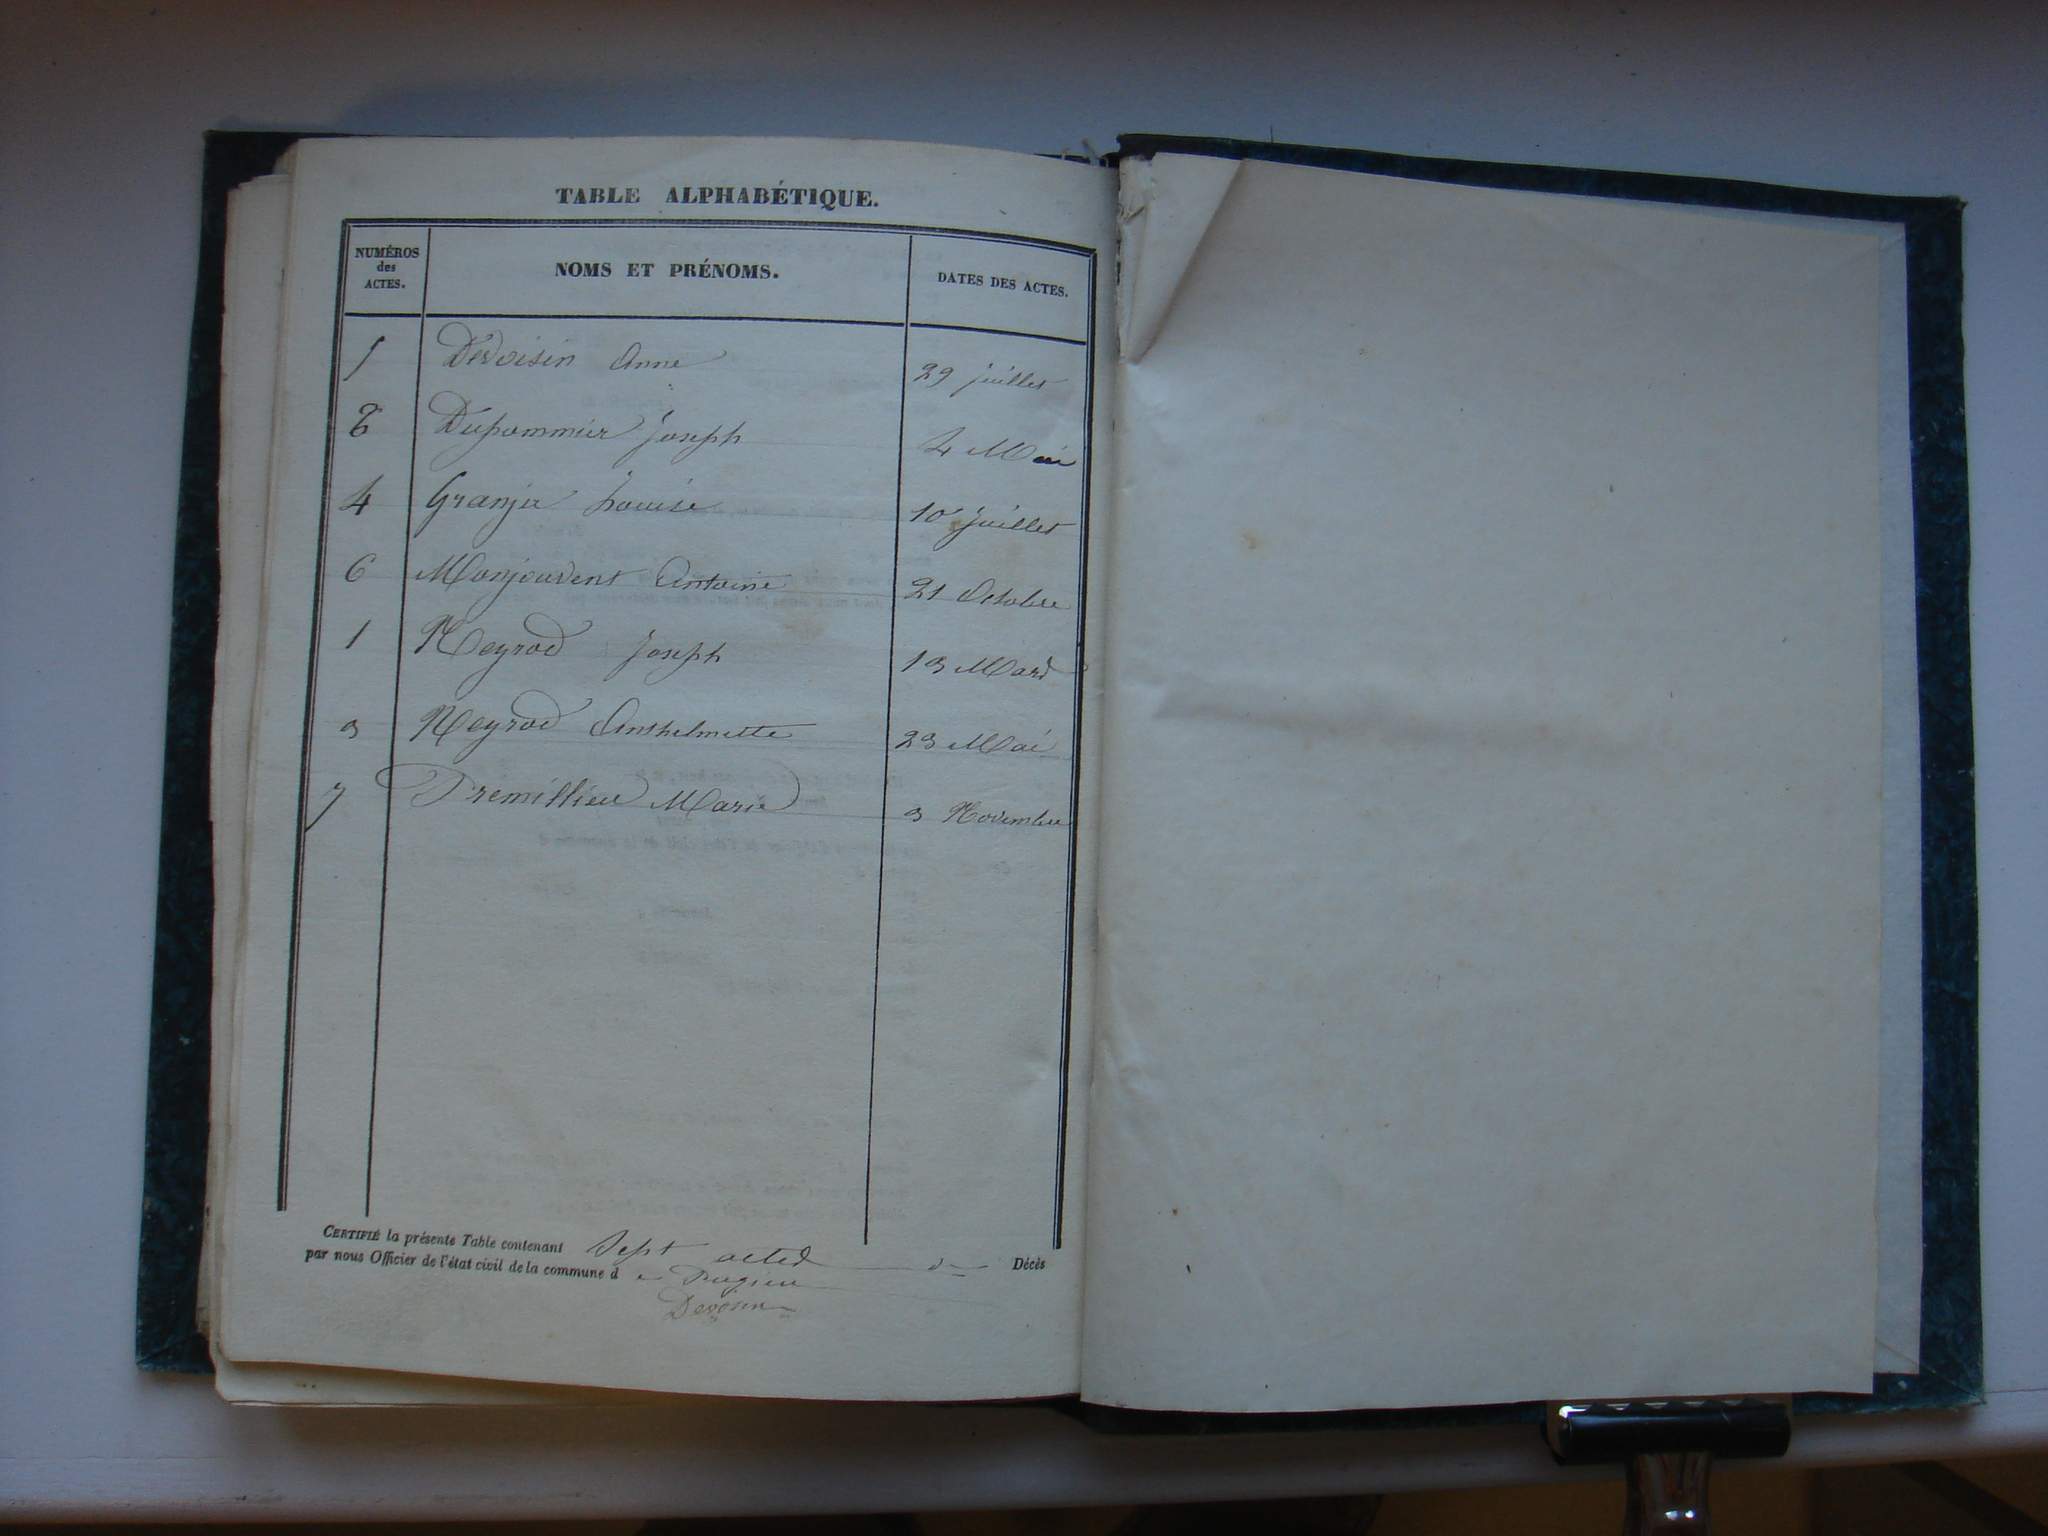 TABLE ALPHABÉTIQUE.
NUMÉROS des ACTES. NOMS ET PRÉNOMS. DATES DES ACTES.
5 Devoisin Anne 29 juillet
2 Dupommier Joseph 4 Mai
4 Granju Louise 10 juillet
6 Monjouvent Antoine 21 Octobre
1 Neyrod Joseph 13 Mars
3 Neyrod Anthelmette 23 Mai
7 Premillieu Marie 3 Novembre
CERTIFIÉ la présente Table contenant Sept actes de Décès
par nous Officier de l'état civil de la commune d e Pugieu
Devoisin